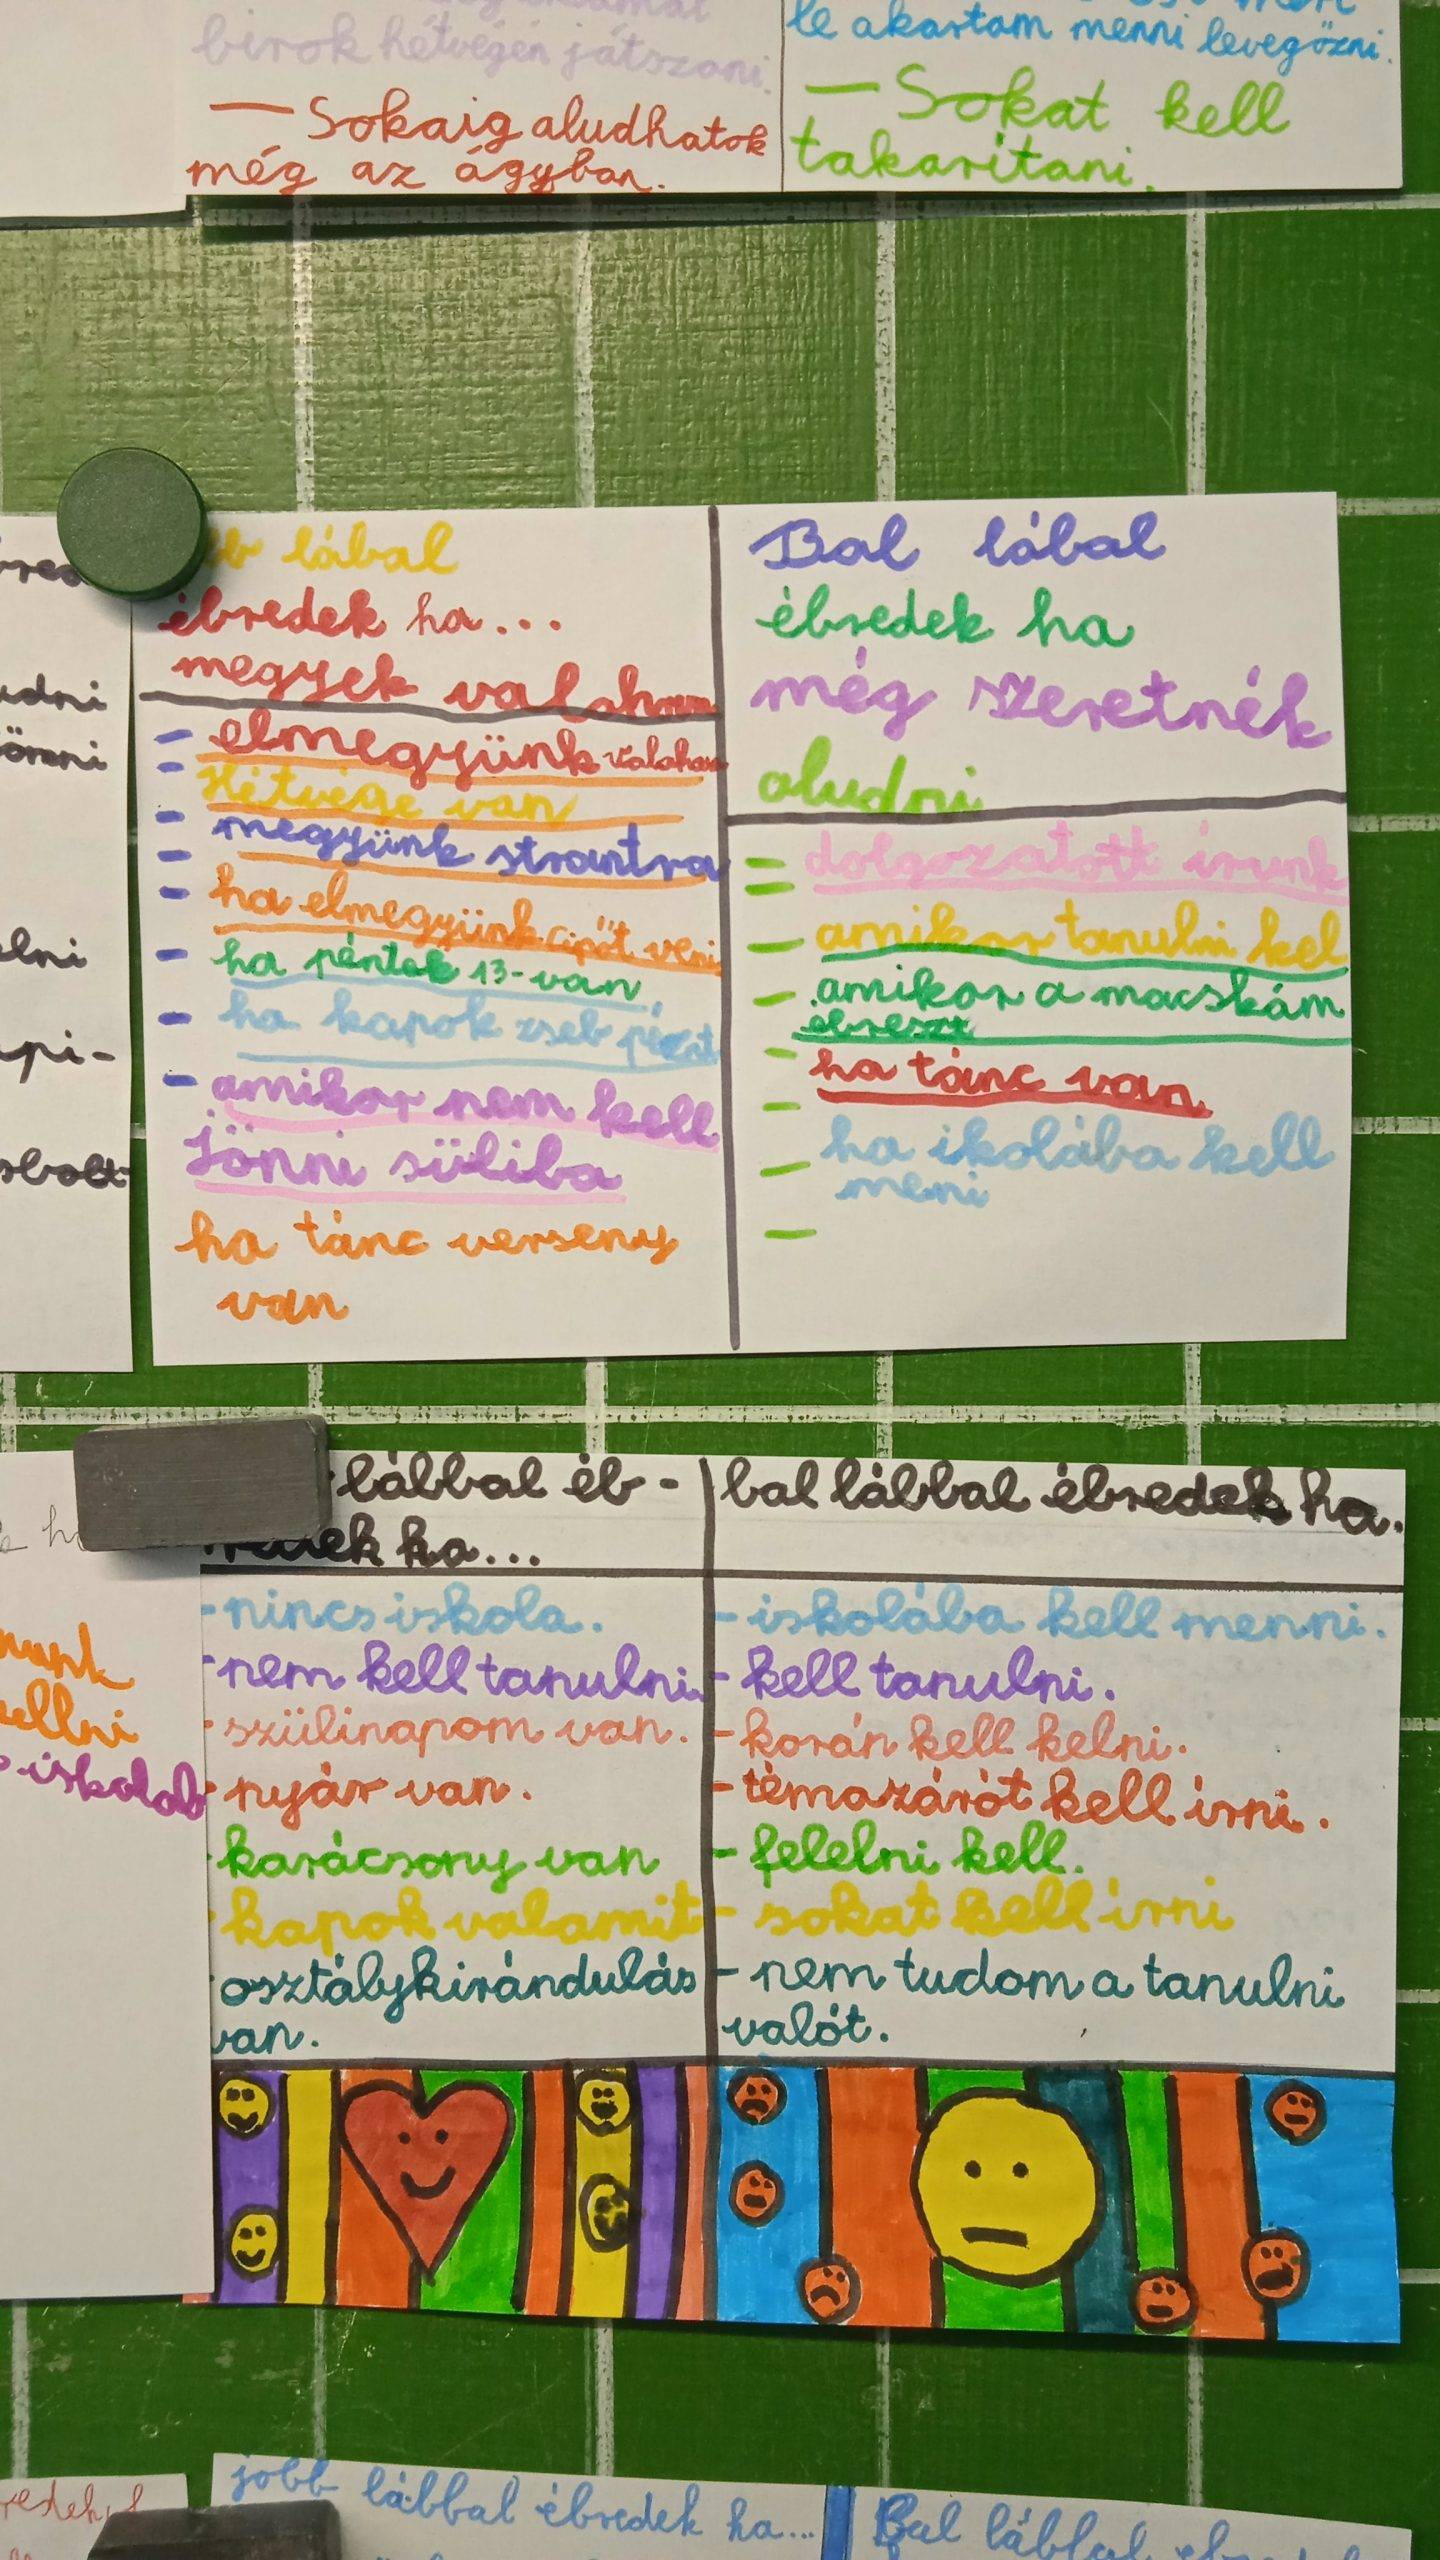 bírok hétvégén játszani.
— Sokaig aludhatok
még az ágyban.
le akartam menni levegőzni.
— Sokat kell
takarítani.
lábal
ébredek ha...
megyek valah
- elmegyünk
- Hétvége van
- megyünk strantra
- ha elmegyünk cipőt veni
- ha péntek 13-van
- ha kapok zseb pézt
- amikor nem kell
Jönni süliba
ha tánc verseny
van
Bal lábal
ébredek ha
még szeretnék
aludni
dolgozatott irunk
amikor tanulni kel
amikor a macskám
ebreszt
ha tánc van
ha ikolába kell
meni
lábbal éb-
redek ha...
- nincs iskola.
- nem kell tanulni.
- szülinapom van.
- nyár van.
- karácsony van
- kapok valamit
osztálykirándulás
van.
bal lábbal ébredek ha.
- iskolába kell menni.
- kell tanulni.
- korán kell kelni.
- témazárót kell írni.
- felelni kell.
- sokat kell írni
- nem tudom a tanulni
valót.
udni
elni
api-
sbolt
ellni
iskolab
jobb lábbal ébredek ha...
Bal lábbal